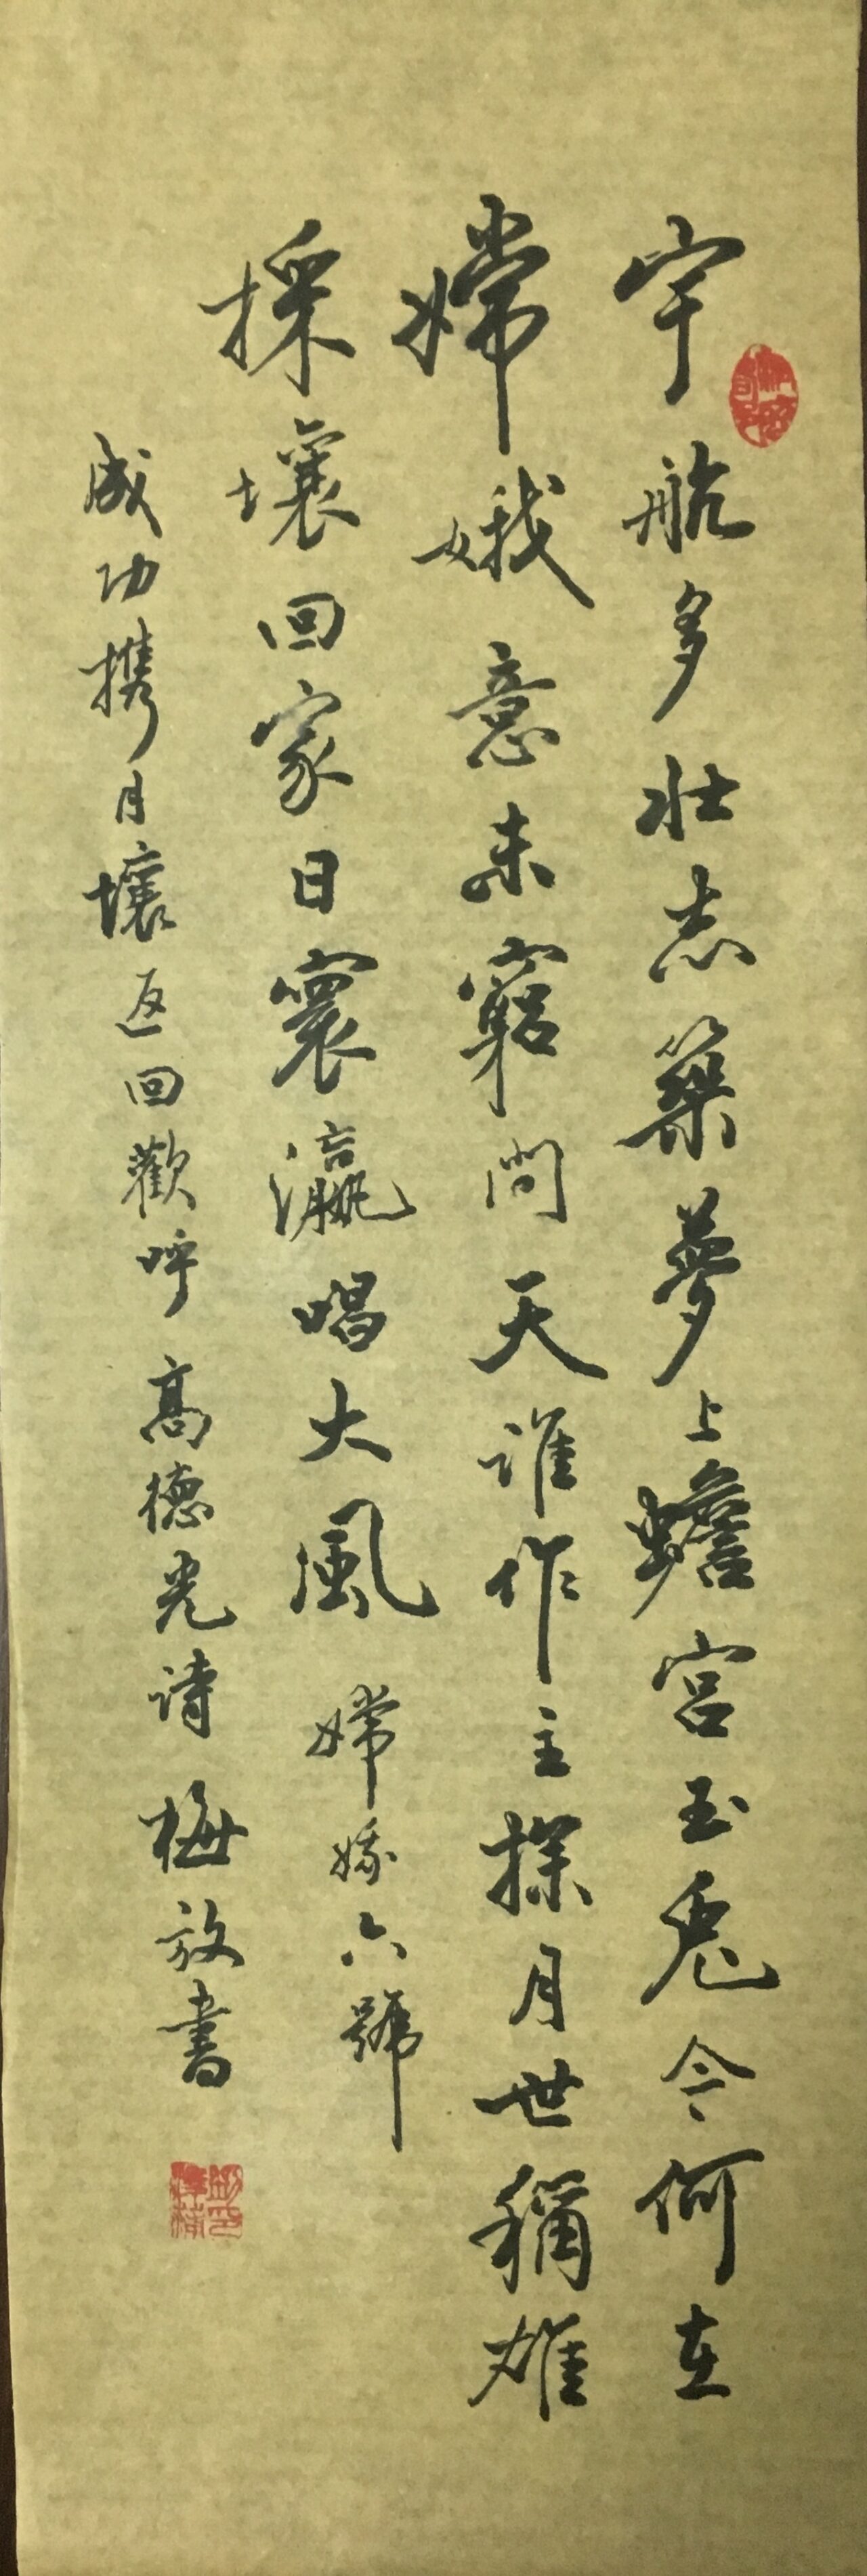 宇航多壯志築夢上蟾宮玉兎今何在
嫦娥意未窮問天誰作主探月世稱雄
採壤回家日寰瀛唱大風 嫦娥六號
成功携月壤返回歡呼 高德光詩 梅放書